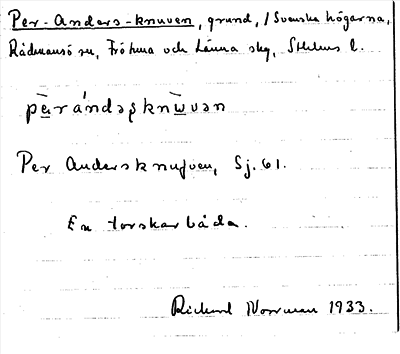 Per-Anders-knuven, grund, / Svenska högarna,
Rådmansö sn, Frötuna och Länna skg, Sthlms l.
pèrándəşknùvən
Per Andersknufven, Sj. 61.
En torskarbåda.
Rickard Norrman 1933.